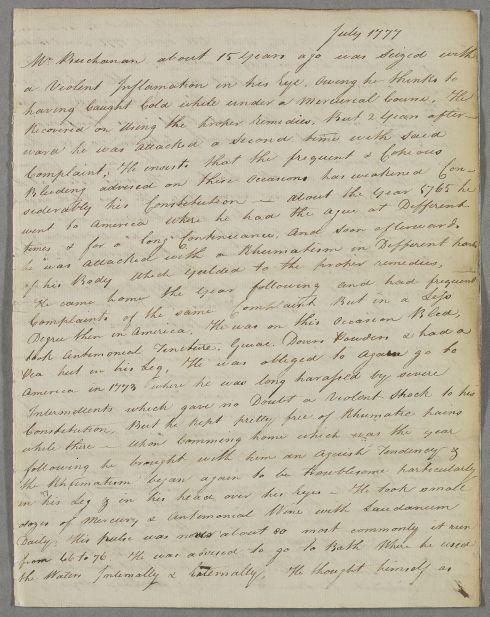 July 1777
Mr Buchanan about 15 Years ago was Seized with
a Violent Inflamation in his Eye, Owing he thinks to
having Caught Cold while under a Mercurial Course. He
Recovered on Using the proper Remedies, But 2 Years after-
ward he was attacked a Second time with Said
Complaint, He insists that the frequent & Copious
Bleeding advised on these Occasions has weakened Con-
siderably his Constitution — about the Year 1765 he
went to America where he had the ague at Different
times & for a long Continuance, And Soon afterwards
he was attacked with a Rhumatism in Different parts
of his Body which Yielded to the proper remedies,
He came home the Year following and had frequent
Complaints of the same Complaint But in a Less
Degree then in America. He was on this Occasion Bled,
took Antimonial Tincture, Guiac. Dovers Powders & had a
Pea put in his Leg, He was obleged to again go to
America in 1773 where he was long harassed by severe
Intermitents which gave no Doubt a Violent Shock to his
Constitution, But he kept pretty free of Rhumatic pains
while there — Upon Comming home which was the year
following he brought with him an Aguish Tendency &
the Rhumatism began again to be troublesome particularly
in his Leg & in his head over his Eyes — He took small
doses of Mercury & Antimonial Wine with Laudanum
Daily, his pulse was about 80 most commonly it run
from 66 to 76. He was advised to go to Bath Where he used
the Waters Internally & Externally, He thought himself as